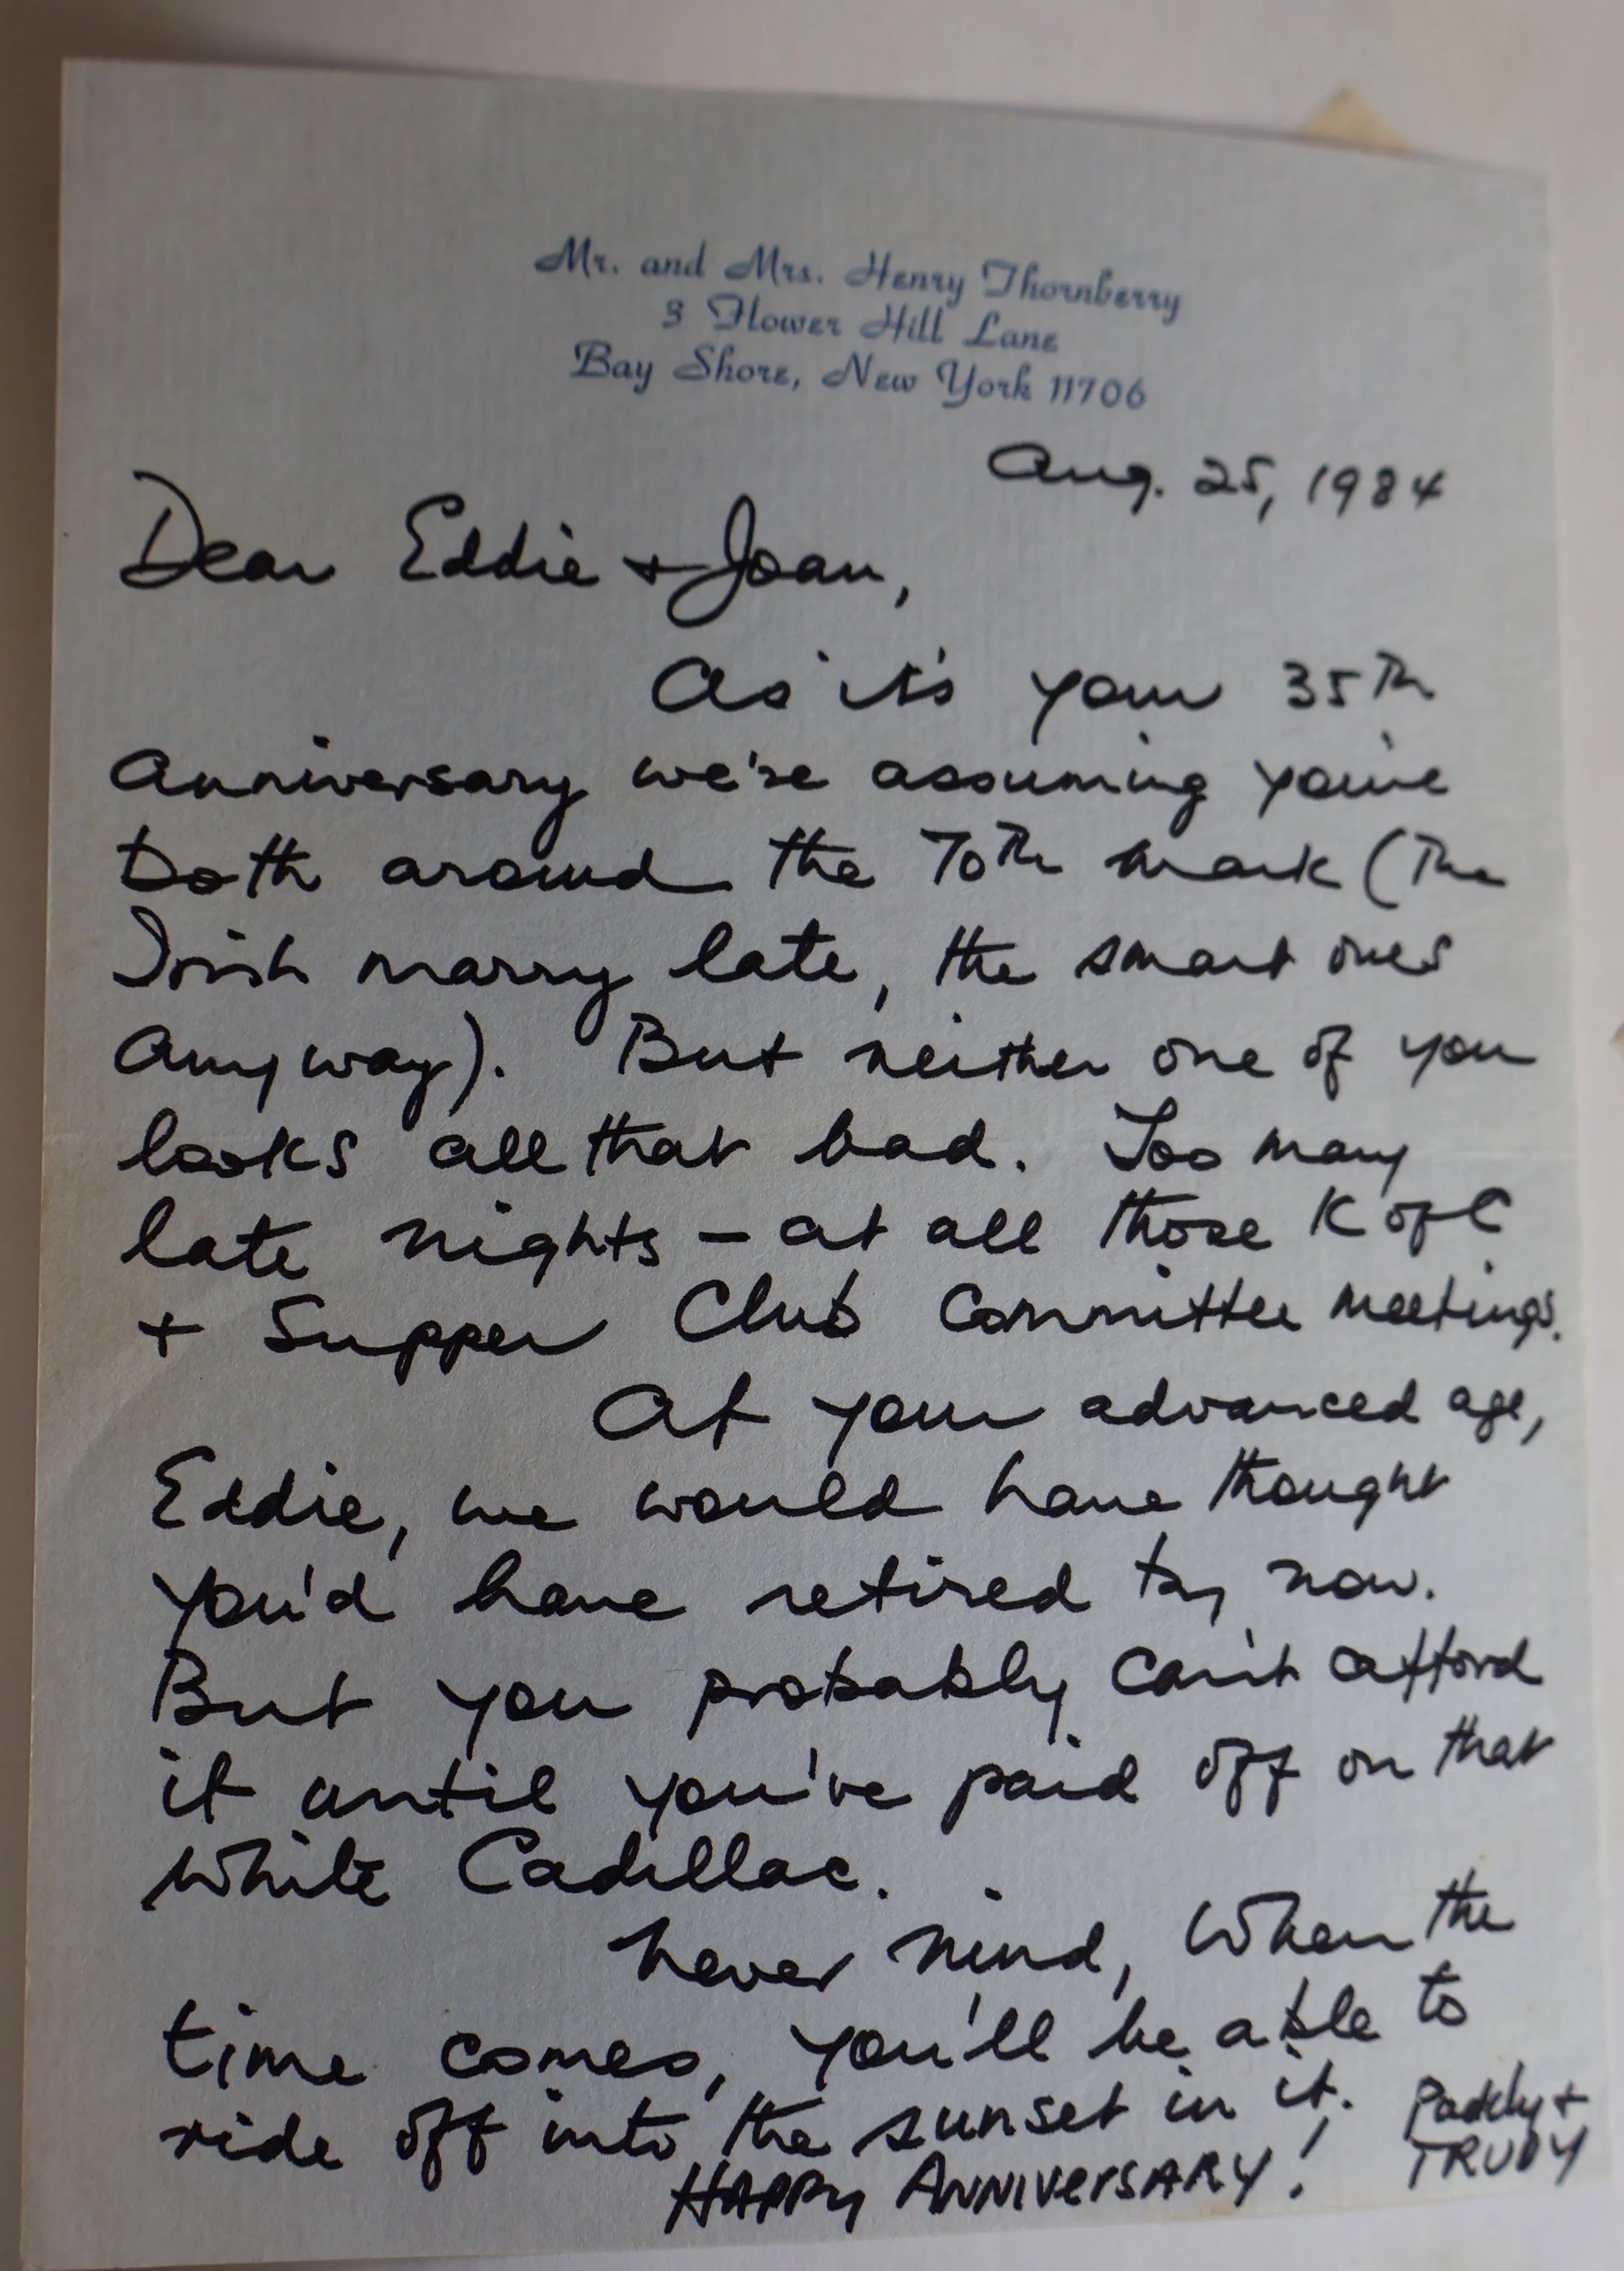 Mr. and Mrs. Henry Thornberry
3 Flower Hill Lane
Bay Shore, New York 11706
Aug. 25, 1984
Dear Eddie + Joan,
As it's your 35th
anniversary we're assuming you're
both around the 70th mark (The
Irish marry late, the smart ones
anyway). But neither one of you
looks all that bad. Too many
late nights - at all those K of C
+ Supper Club Committee meetings.
At your advanced age,
Eddie, we would have thought
you'd have retired by now.
But you probably can't afford
it until you've paid off on that
white Cadillac.
Never mind, when the
time comes, you'll be able to
ride off into the sunset in it.
HAPPY ANNIVERSARY!
Paddy +
TRUDY